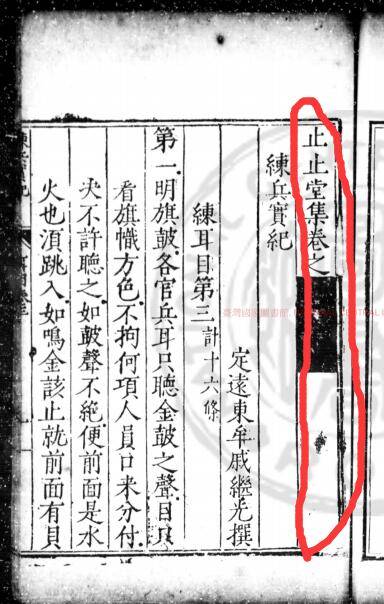 止止堂集卷之
練兵實紀
定遠東牟戚繼光撰
練耳目第三計十六條
第一明旗皷各官兵耳只聽金皷之聲目只
看旗幟方色不拘何項人員口来分付
决不許聽之如皷聲不絶便前面是水
火也湏跳入如鳴金該止就前面有貝